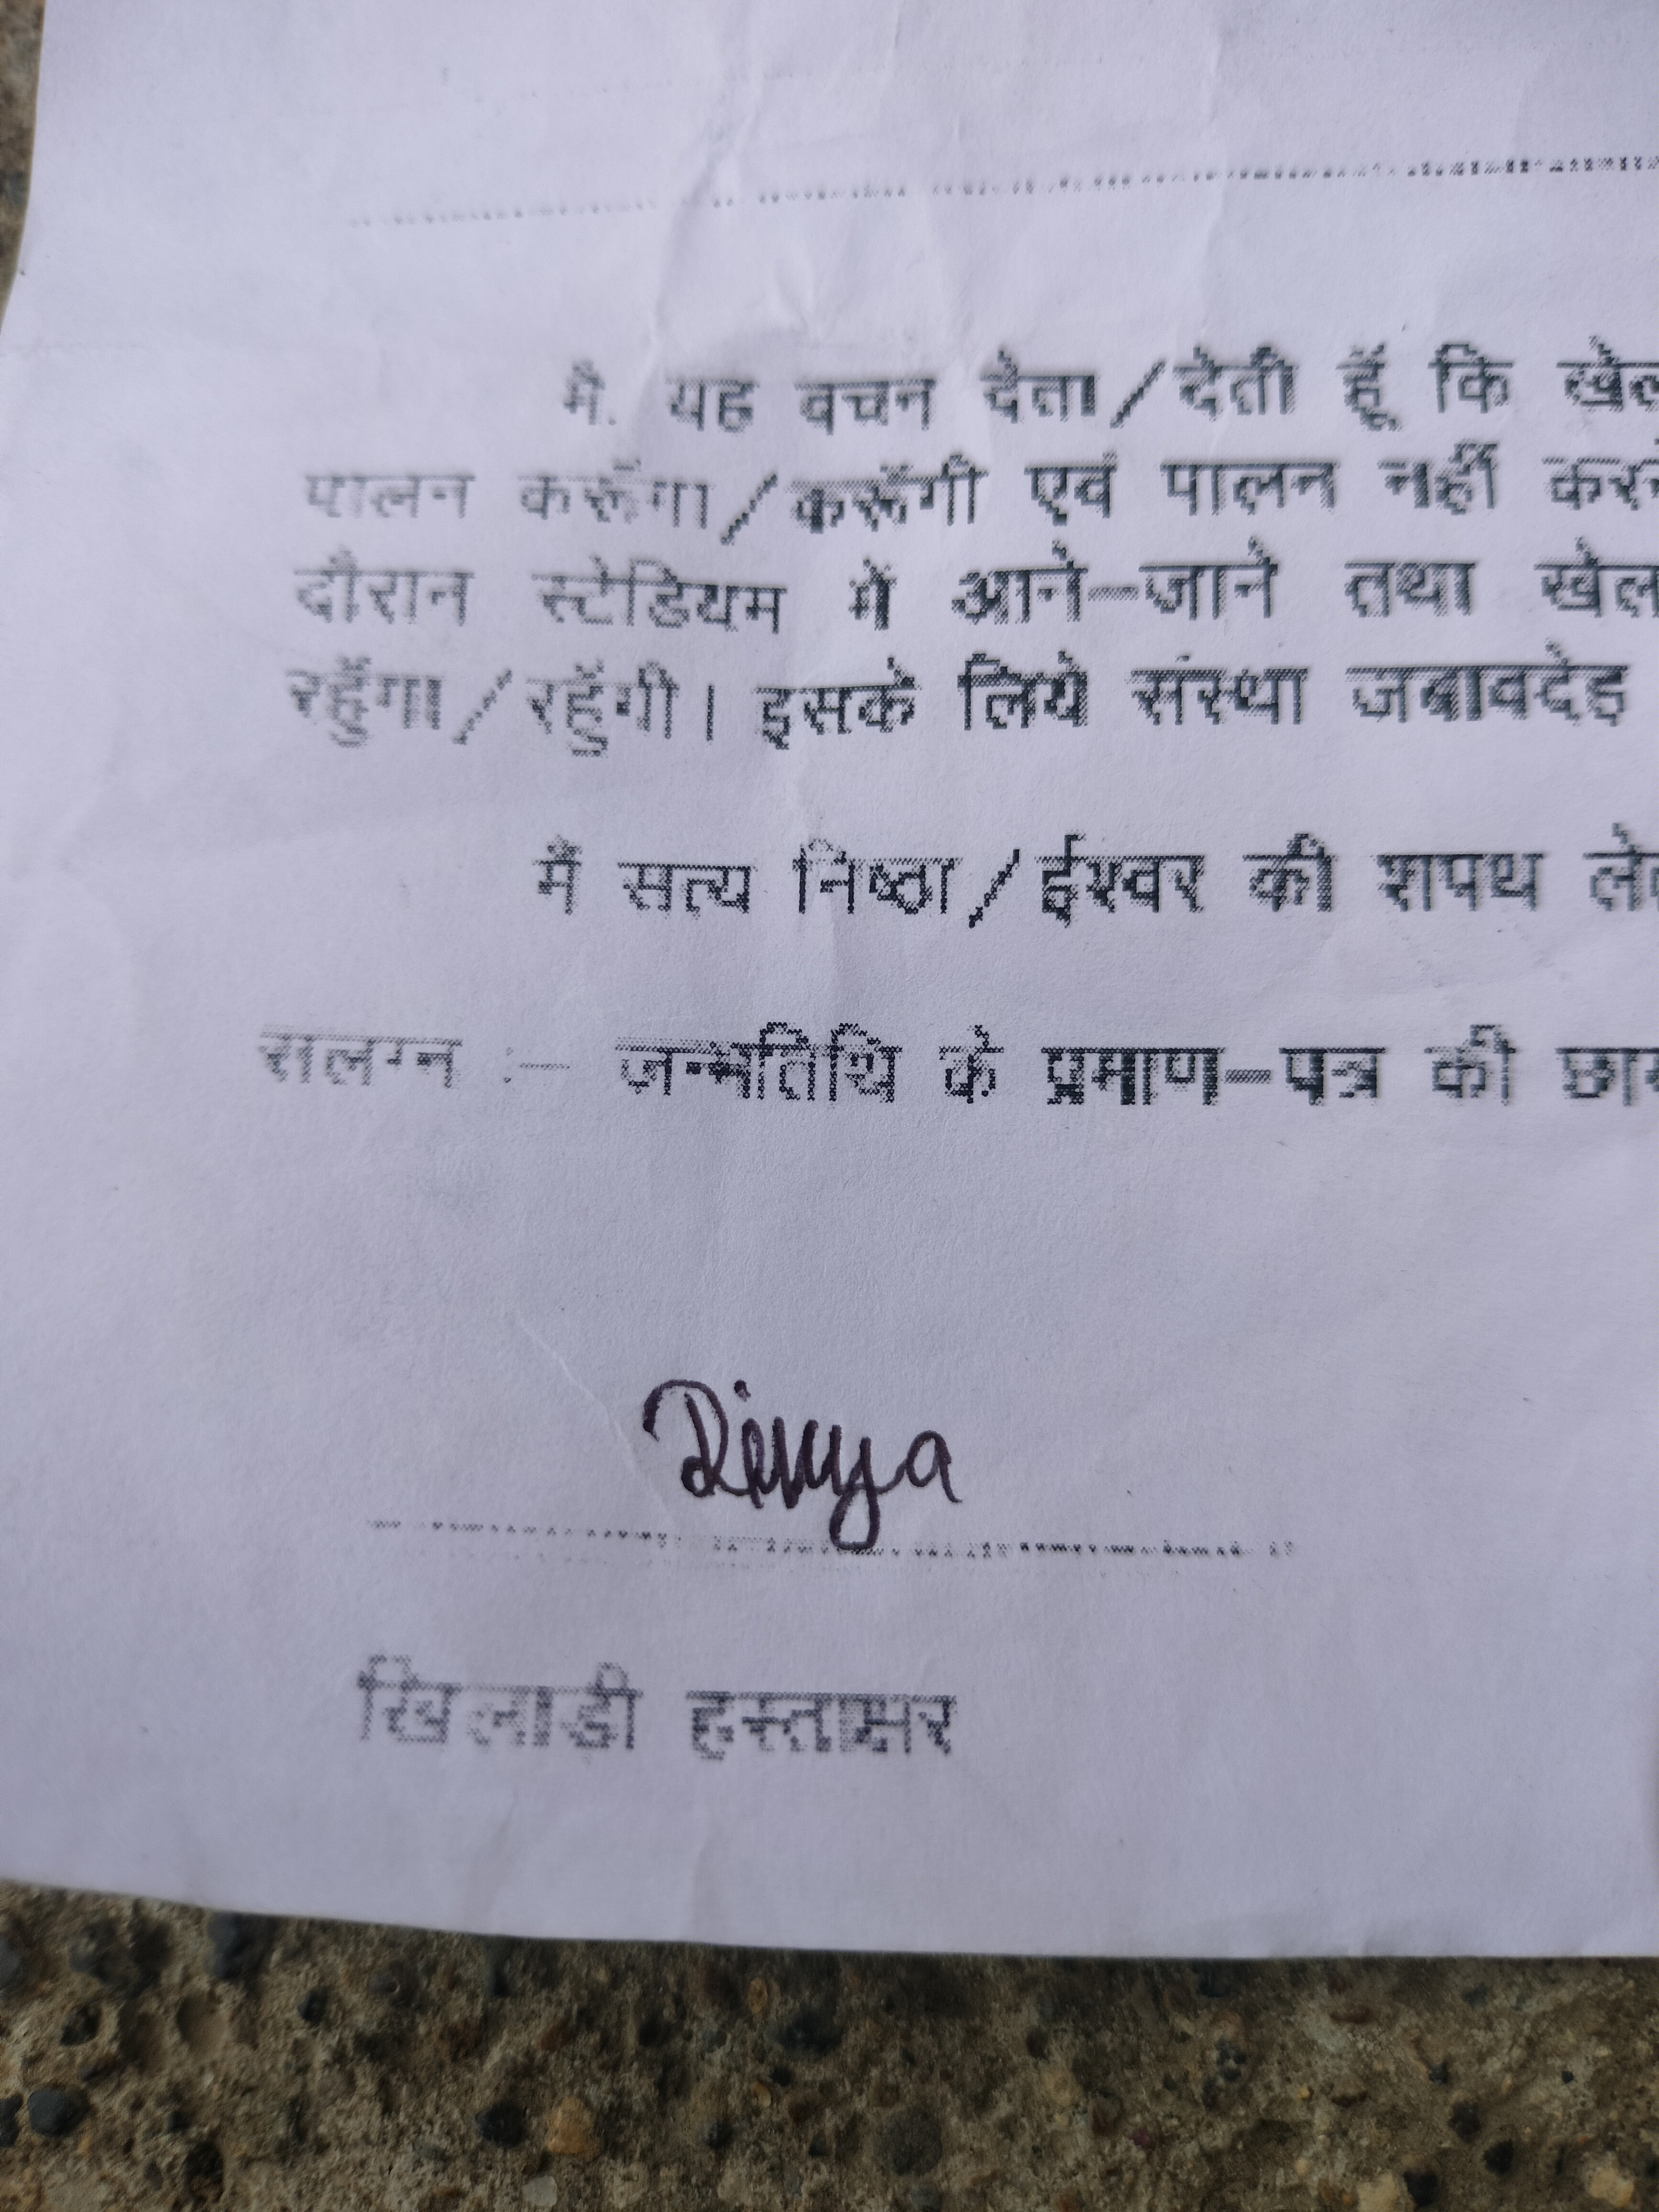 मैं यह वचन देता/देती हूँ कि खेल
पालन करूँगा/करूँगी एवं पालन नहीं करने
दौरान स्टेडियम में आने-जाने तथा खेल
रहूँगा/रहूँगी। इसके लिये संस्था जबावदेह
मैं सत्य निष्ठा/ईश्वर की शपथ
सलग्न :- जन्मतिथि के प्रमाण-पत्र की
Divya
खिलाडी हस्ताक्षर